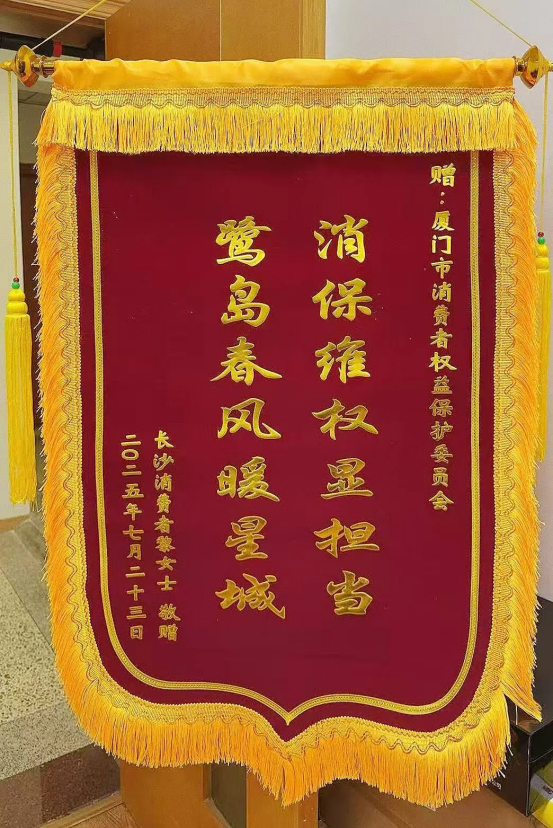 赠：厦门市消费者权益保护委员会
消保维权显担当
鹭岛春风暖星城
长沙消费者黎女士 敬赠
二〇二五年七月二十三日